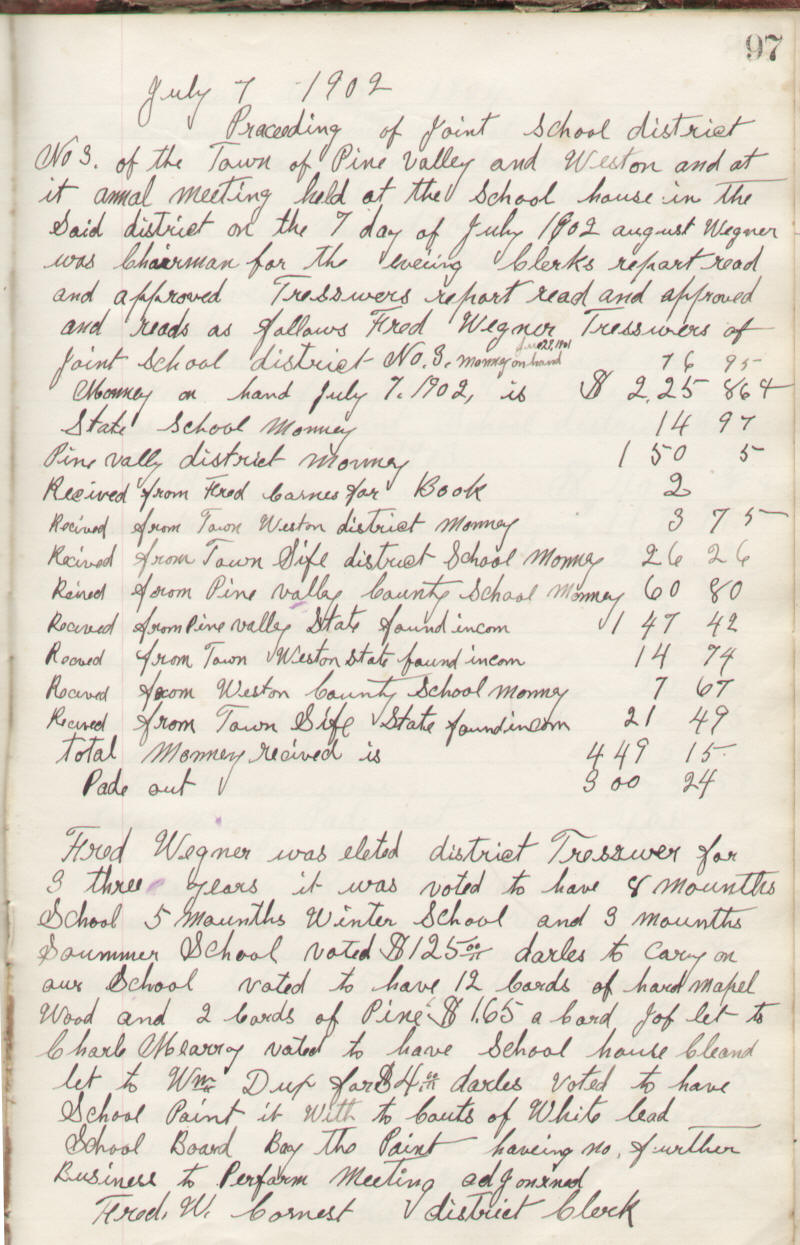 97
July 7 1902
Praceeding of Joint School district
No 3. of the Town of Pine Valley and Weston and at
it annal meeting held at the School house in the
Said district on the 7 day of July 1902 august Wegner
was Chairman for the eveeing Clerks report read
and approved Tresswers report read and approved
and reads as fallows Fred Wegner Tresswers of
Joint School district No. 3. Monney on hand 76 95
Monney on hand July 7. 1902, is $ 2.25 864
State School Monney 14 97
Pine vally district Monney 1 50 5
Recived from Fred Carnes for Book 2
Recived from Town Weston district Monney 3 75
Recived from Town Sife district School Monney 26 26
Reived from Pine valley County School Monney 60 80
Recived from Pine valley State found incom 1 47 42
Recved from Town Weston State found incom 14 74
Recived from Weston County School Monney 7 67
Recived from Town Sife State found incom 21 49
total Monney recived is 449 15
Pade out 300 24
Fred Wegner was eleted district Tresswer for
3 three years it was voted to have 8 mounths
School 5 Mounths Winter School and 3 mounths
Soummer School voted $125.00 darles to cary on
our School voted to have 12 Cords of hard mapel
Wood and 2 Cords of Pine $1.65 a Cord Jof let to
Charle voted to have School house Cleand
let to Wm Dup for $4.00 darles voted to have
School Paint it With to Couts of White lead
School Board Bay the Paint haveing no, further
Business to Perfarm Meeting adjonined
Fred. W. Cornest district Clerk